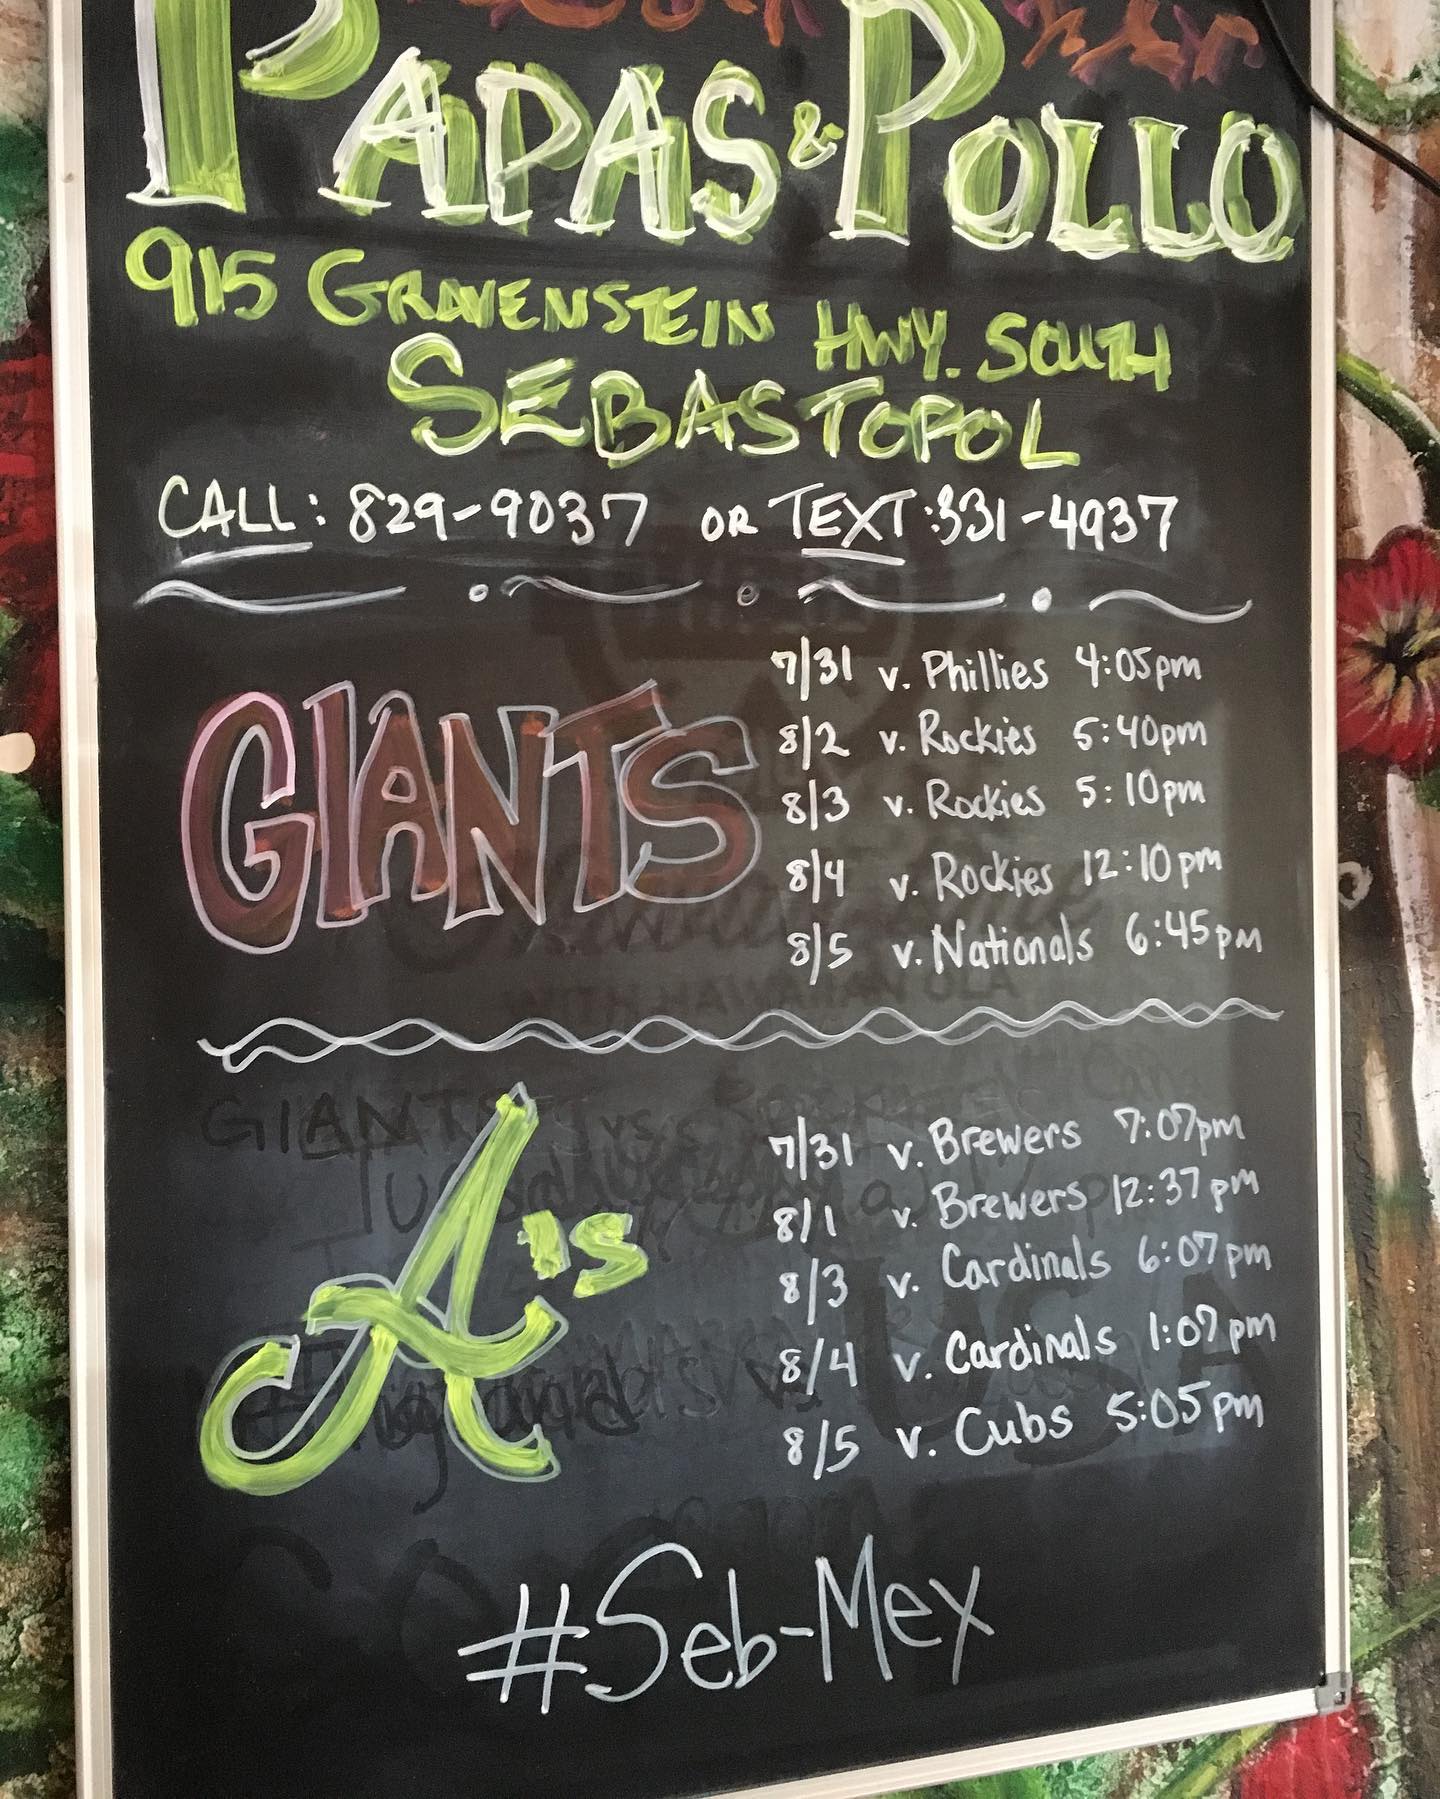 PAPAS & POLLO
915 GRAVENSTEIN HWY. SOUTH
SEBASTOPOL
CALL: 829-9037 OR TEXT: 331-4937
GIANTS
7/31 v. Phillies 4:05pm
8/2 v. Rockies 5:40pm
8/3 v. Rockies 5:10pm
8/4 v. Rockies 12:10pm
8/5 v. Nationals 6:45pm
A's
7/31 v. Brewers 7:07pm
8/1 v. Brewers 12:37pm
8/3 v. Cardinals 6:07pm
8/4 v. Cardinals 1:07pm
8/5 v. Cubs 5:05pm
#Seb-Mex